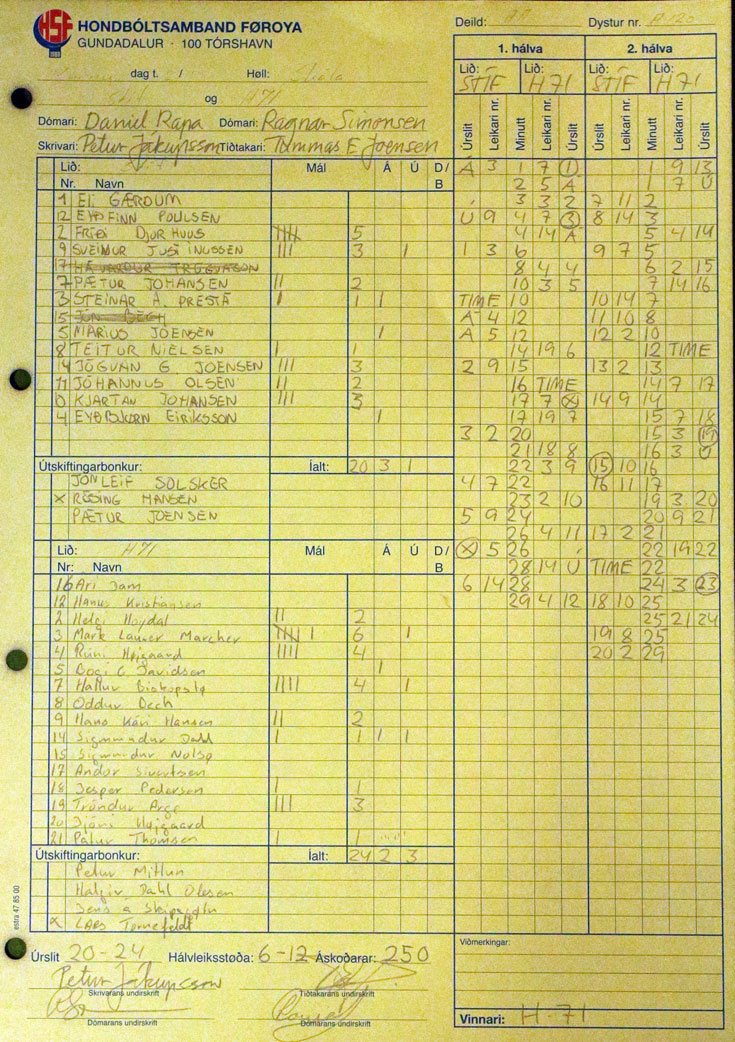 HSF
HONDBÓLTSAMBAND FØROYA
GUNDADALUR · 100 TÓRSHAVN
Deild: Dystur nr.
dag t. Høll: Skála
og H71
Dómari: Daniel Rana Dómari: Ragnar Simonsen
Skrivari: Petur Jákupsson Tíðtakari: Tummas E Joensen
1. hálva 2. hálva
Lið: Lið: Lið: Lið:
STÍF H71 STÍF H71
Úrslit Leikari nr. Minutt Leikari nr. Úrslit Úrslit Leikari nr. Minutt Leikari nr. Úrslit
Lið: Mál Á Ú D/B
Nr. Navn
1 Eli GÆRDUM
12 EYÐFINN POULSEN
2 FRÍÐI DJURHUUS 5
9 SVEINUR JUSTINUSSEN III 3 1
7 PÆTUR JOHANSEN II 2
3 STEINAR A. PRESTÁ I 1 1
15 JÓN BECH
5 MARIUS JOENSEN 1
8 TEITUR NIELSEN I 1
14 JÓGVAN G. JOENSEN III 3
11 JÓHANNUS OLSEN II 2
10 KJARTAN JOHANSEN III 3
4 EYÐBJØRN EIRIKSSON 1
Útskiftingarbonkur: Íalt: 20 3 1
JÓNLEIF SOLSKER
X RÓÐING HANSEN
PÆTUR JOENSEN
Lið: H71 Mál Á Ú D/B
Nr: Navn
16 Ari Jam
12 Hanus Kristiansen
2 Helgi Hoydal II 2
3 Mark Lauser Marcher 6 1
4 Rúni Højgaard IIII 4
5 Bogi G Davidsen 1
7 Hallur Biskopstø IIII 4 1
8 Oddur Bech
9 Hans Kári Hansen II 2
14 Sigmundur Dahl I 1 1 1
15 Sigmundur Nolsø
17 Andor Sivertsen
18 Jesper Pedersen I 1
19 Tróndur Arge III 3
20 Højgaard
21 Pætur Thomsen I 1
Útskiftingarbonkur: Íalt: 24 2 3
Petur Mitlun
Halgir Dahl Olesen
X LARS Tonnefeldt
Á 3 1 7 1 1 9 13
2 5 Á 1 7 Ú
3 3 2 7 11 2
Ú 9 4 7 3 8 14 3
4 14 Á 5 4 14
1 3 6 9 7 5
8 4 4 6 2 15
10 3 5 7 14 16
TIME 10 10 14 7
Á 4 12 11 10 8
Á 5 12 12 2 10
14 19 6 12 TIME
2 9 15 13 2 13
16 TIME 14 7 17
17 7 X 14 9 14
17 19 7 15 7 18
3 2 20 15 3 19
21 18 8 16 3 Ú
22 3 9 15 10 16
4 7 22 16 11 17
23 2 10 19 3 20
5 9 24 20 9 21
26 4 11 17 2 21
X 5 26 22 19 22
28 14 Ú TIME 22
6 14 28 24 3 23
29 4 12 18 10 25
25 21 24
19 8 25
20 2 29
Viðmerkingar:
Úrslit 20-24 Hálvleiksstøða: 6-12 Áskoðarar: 250
Petur Jákupsson
Skrivarans undirskrift Tíðtakarans undirskrift
Dómarans undirskrift Dómarans undirskrift
Vinnari: H-71
estra 47 85 00